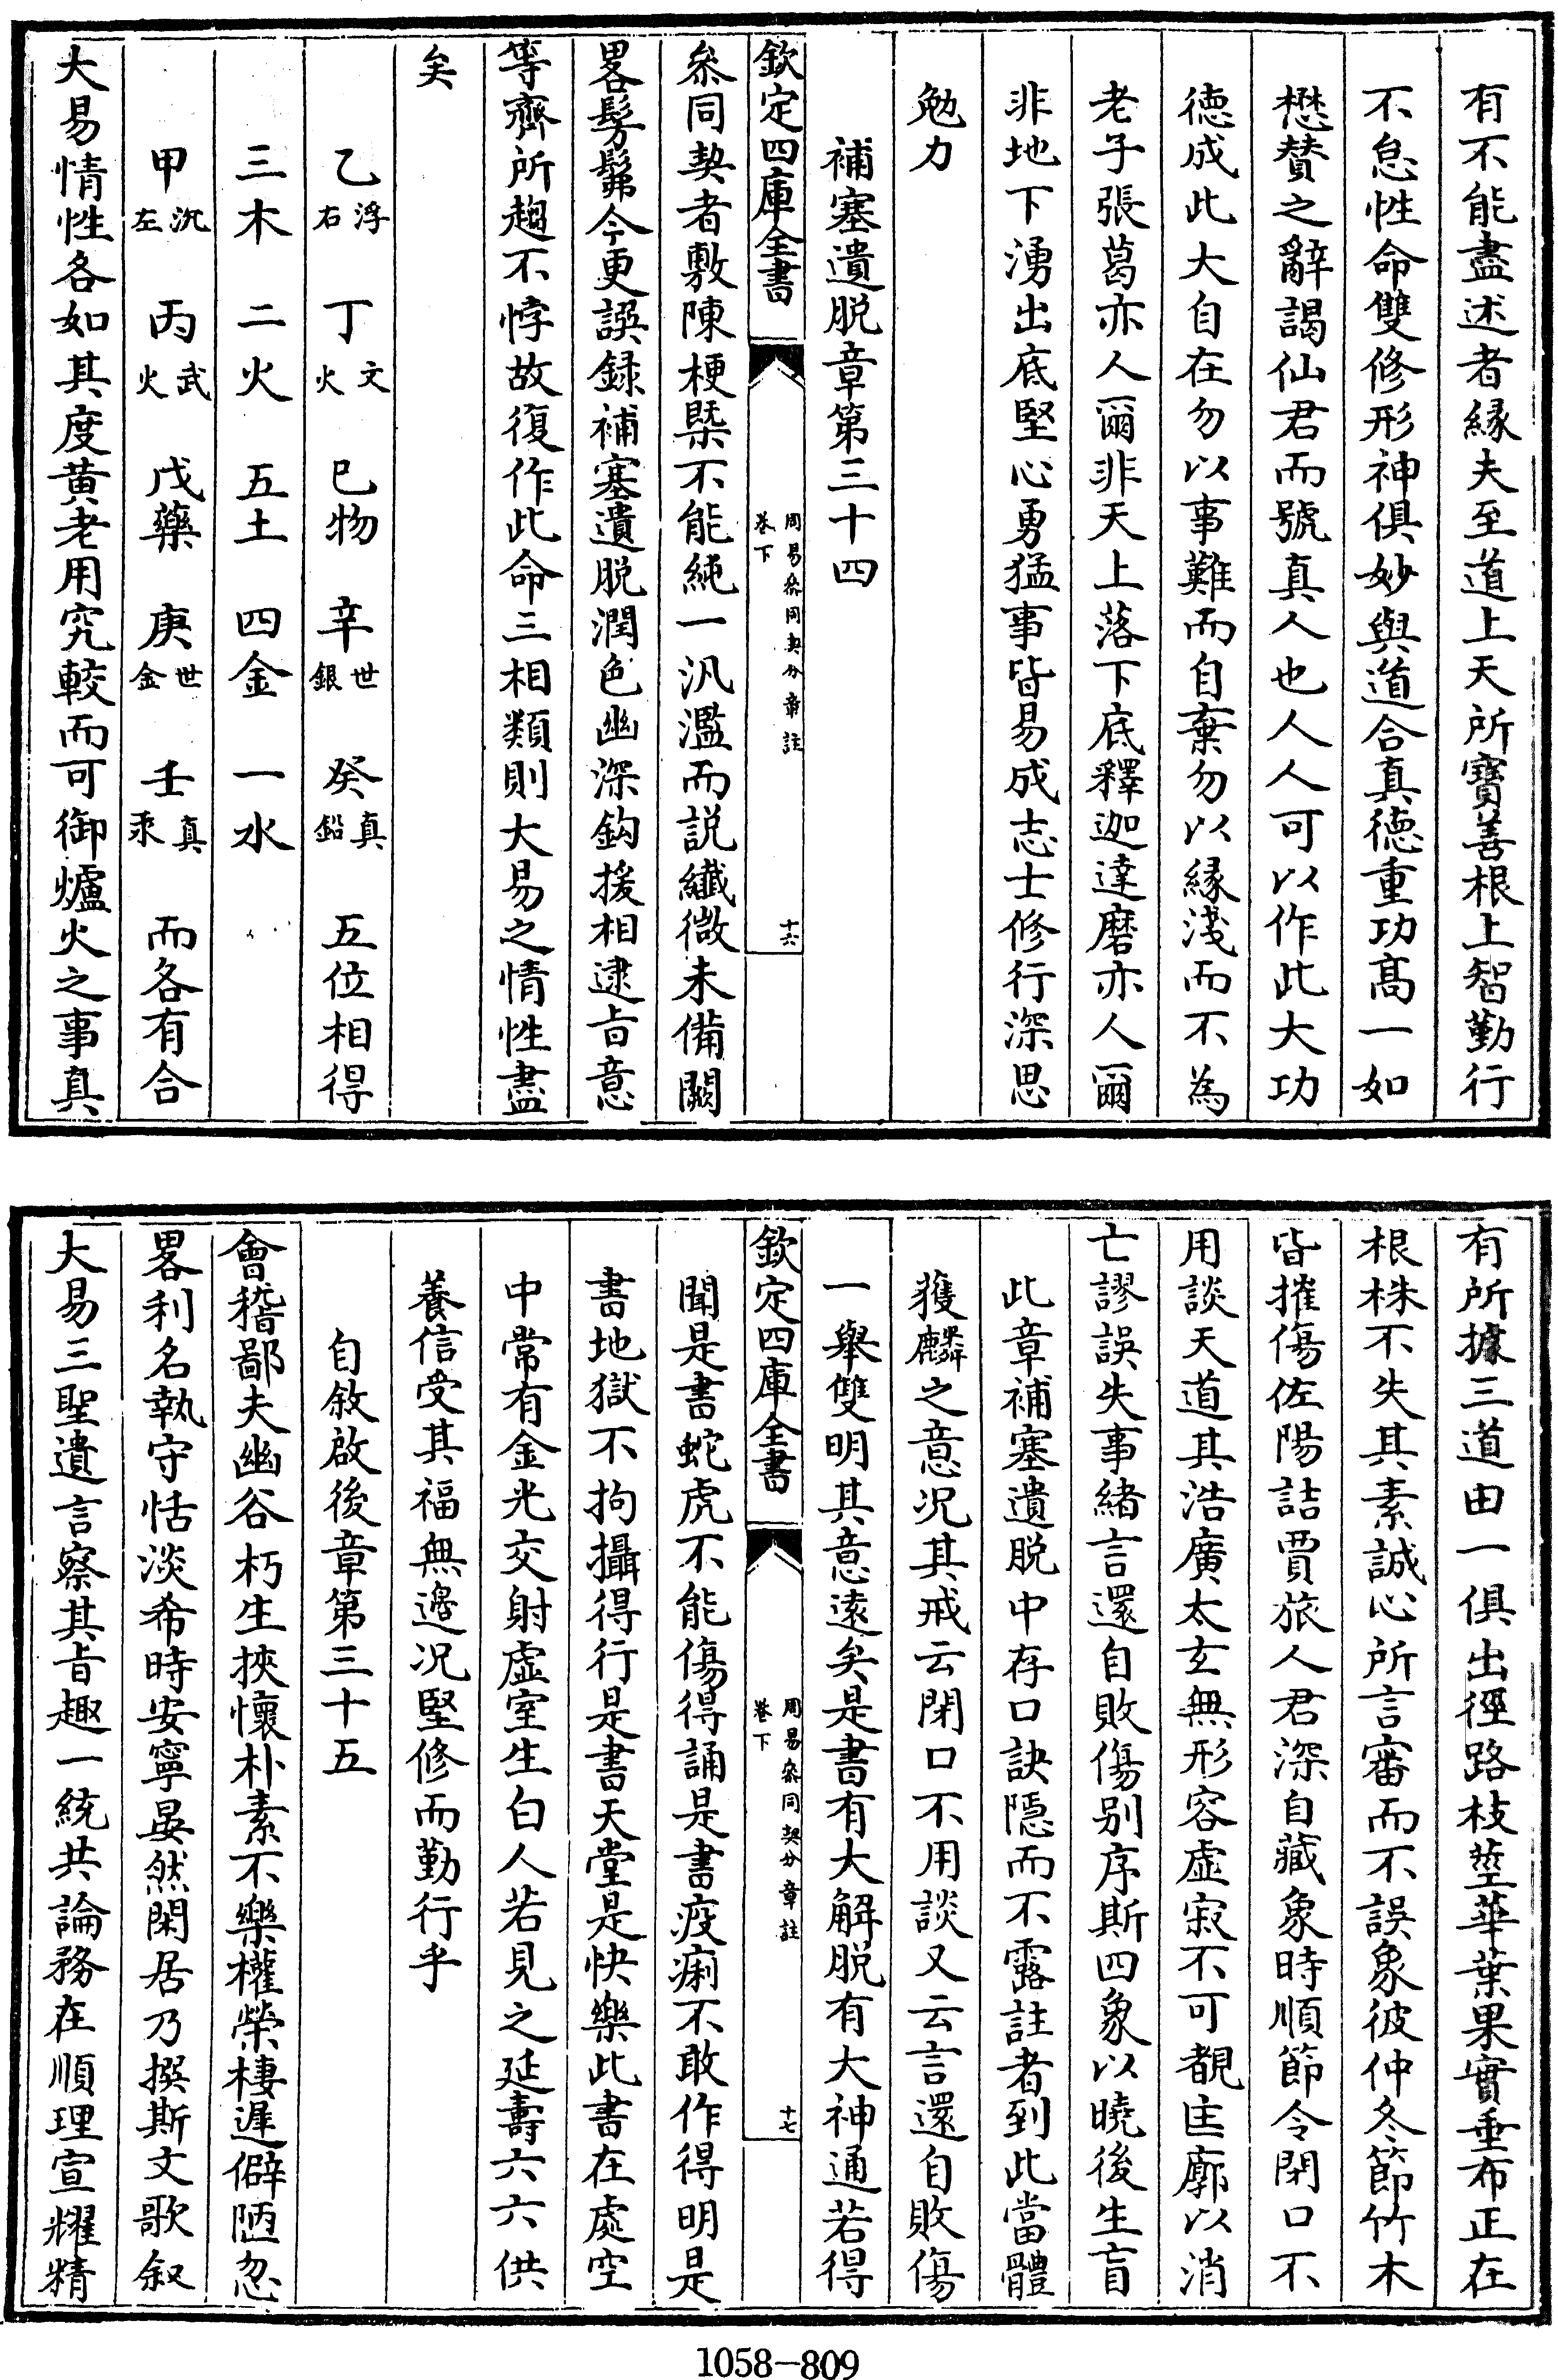 有不能盡述者緣夫至道上天所寶善根上智勤行
不怠性命雙修形神俱妙與道合真德重功高一如
懋贊之辭謁仙君而號真人也人人可以作此大功
德成此大自在勿以事難而自棄勿以緣淺而不為
老子張葛亦人爾非天上落下底釋迦達磨亦人爾
非地下湧出底堅心勇猛事皆易成志士修行深思
勉力
補塞遺脱章第三十四
欽定四庫全書
周易叅同契分章註
卷下
十六
叅同契者敷陳梗槩不能純一汎濫而説纖微未備闕
畧髣髴今更誤録補塞遺脱潤色幽深鈎援相逮㫖意
等齊所趨不悖故復作此命三相類則大易之情性盡
矣
乙浮右 丁文火 巳物 辛世銀 癸真鉛 五位相得
三木 二火 五土 四金 一水
甲沉左 丙武火 戊藥 庚世金 壬真汞 而各有合
大易情性各如其度黄老用究較而可御爐火之事真
有所據三道由一俱出徑路枝莖華葉果實垂布正在
根株不失其素誠心所言審而不誤象彼仲冬節竹木
皆摧傷佐陽詰賈旅人君深自藏象時順節令閉口不
用談天道其浩廣太玄無形容虚寂不可覩匡廓以消
亡謬誤失事緒言還自敗傷别序斯四象以曉後生盲
此章補塞遺脱中存口訣隱而不露註者到此當體
獲麟之意况其戒云閉口不用談又云言還自敗傷
一舉雙明其意逺矣是書有大解脱有大神通若得
欽定四庫全書
周易叅同契分章註
卷下
十七
聞是書蛇虎不能傷得誦是書疫痢不敢作得明是
書地獄不拘攝得行是書天堂是快樂此書在處空
中常有金光交射虚室生白人若見之延壽六六供
養信受其福無邊况堅修而勤行乎
自敘啟後章第三十五
會稽鄙夫幽谷朽生挾懷朴素不樂權榮棲遲僻陋忽
畧利名執守恬淡希時安寧晏然閑居乃撰斯文歌叙
大易三聖遺言察其㫖趣一統共論務在順理宣耀精
1058-809